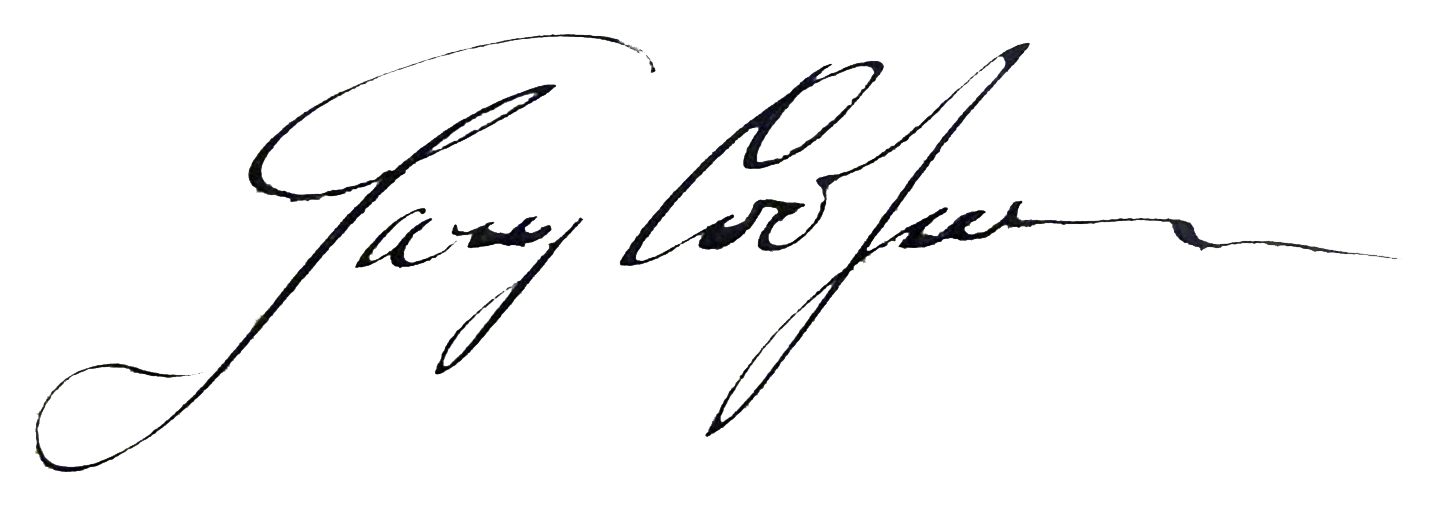 Gary Cooper